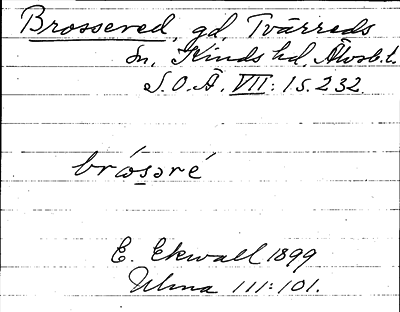 Brossered, gd, Tvärreds
sn, Kinds hd, Älvsb. l.
S.O.Ä. VII: 1 s. 232
bró̀səré
E. Ekwall 1899
Ulma 111:101.